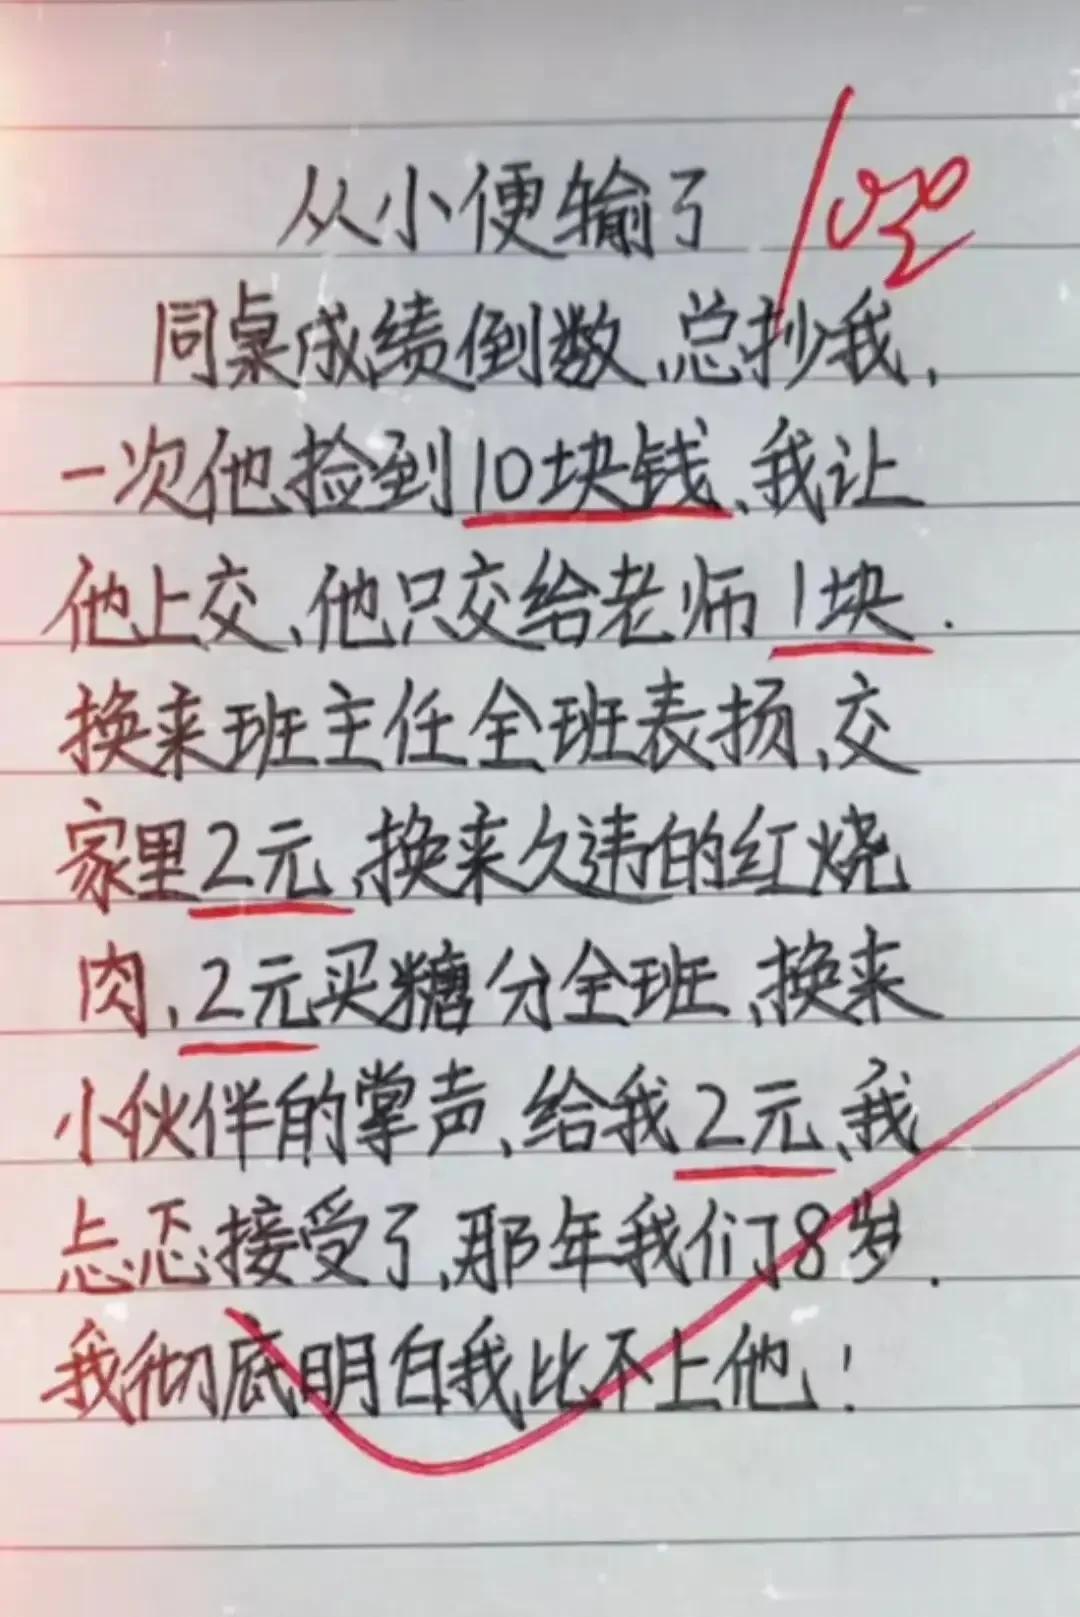 从小便输了 100
同桌成绩倒数、总抄我,
一次他捡到10块钱、我让
他上交、他只交给老师1块.
换来班主任全班表扬、交
家里2元、换来久违的红烧
肉、2元买糖分全班、换来
小伙伴的掌声、给我2元、我
忐忑接受了、那年我们8岁.
我彻底明白我比不上他!